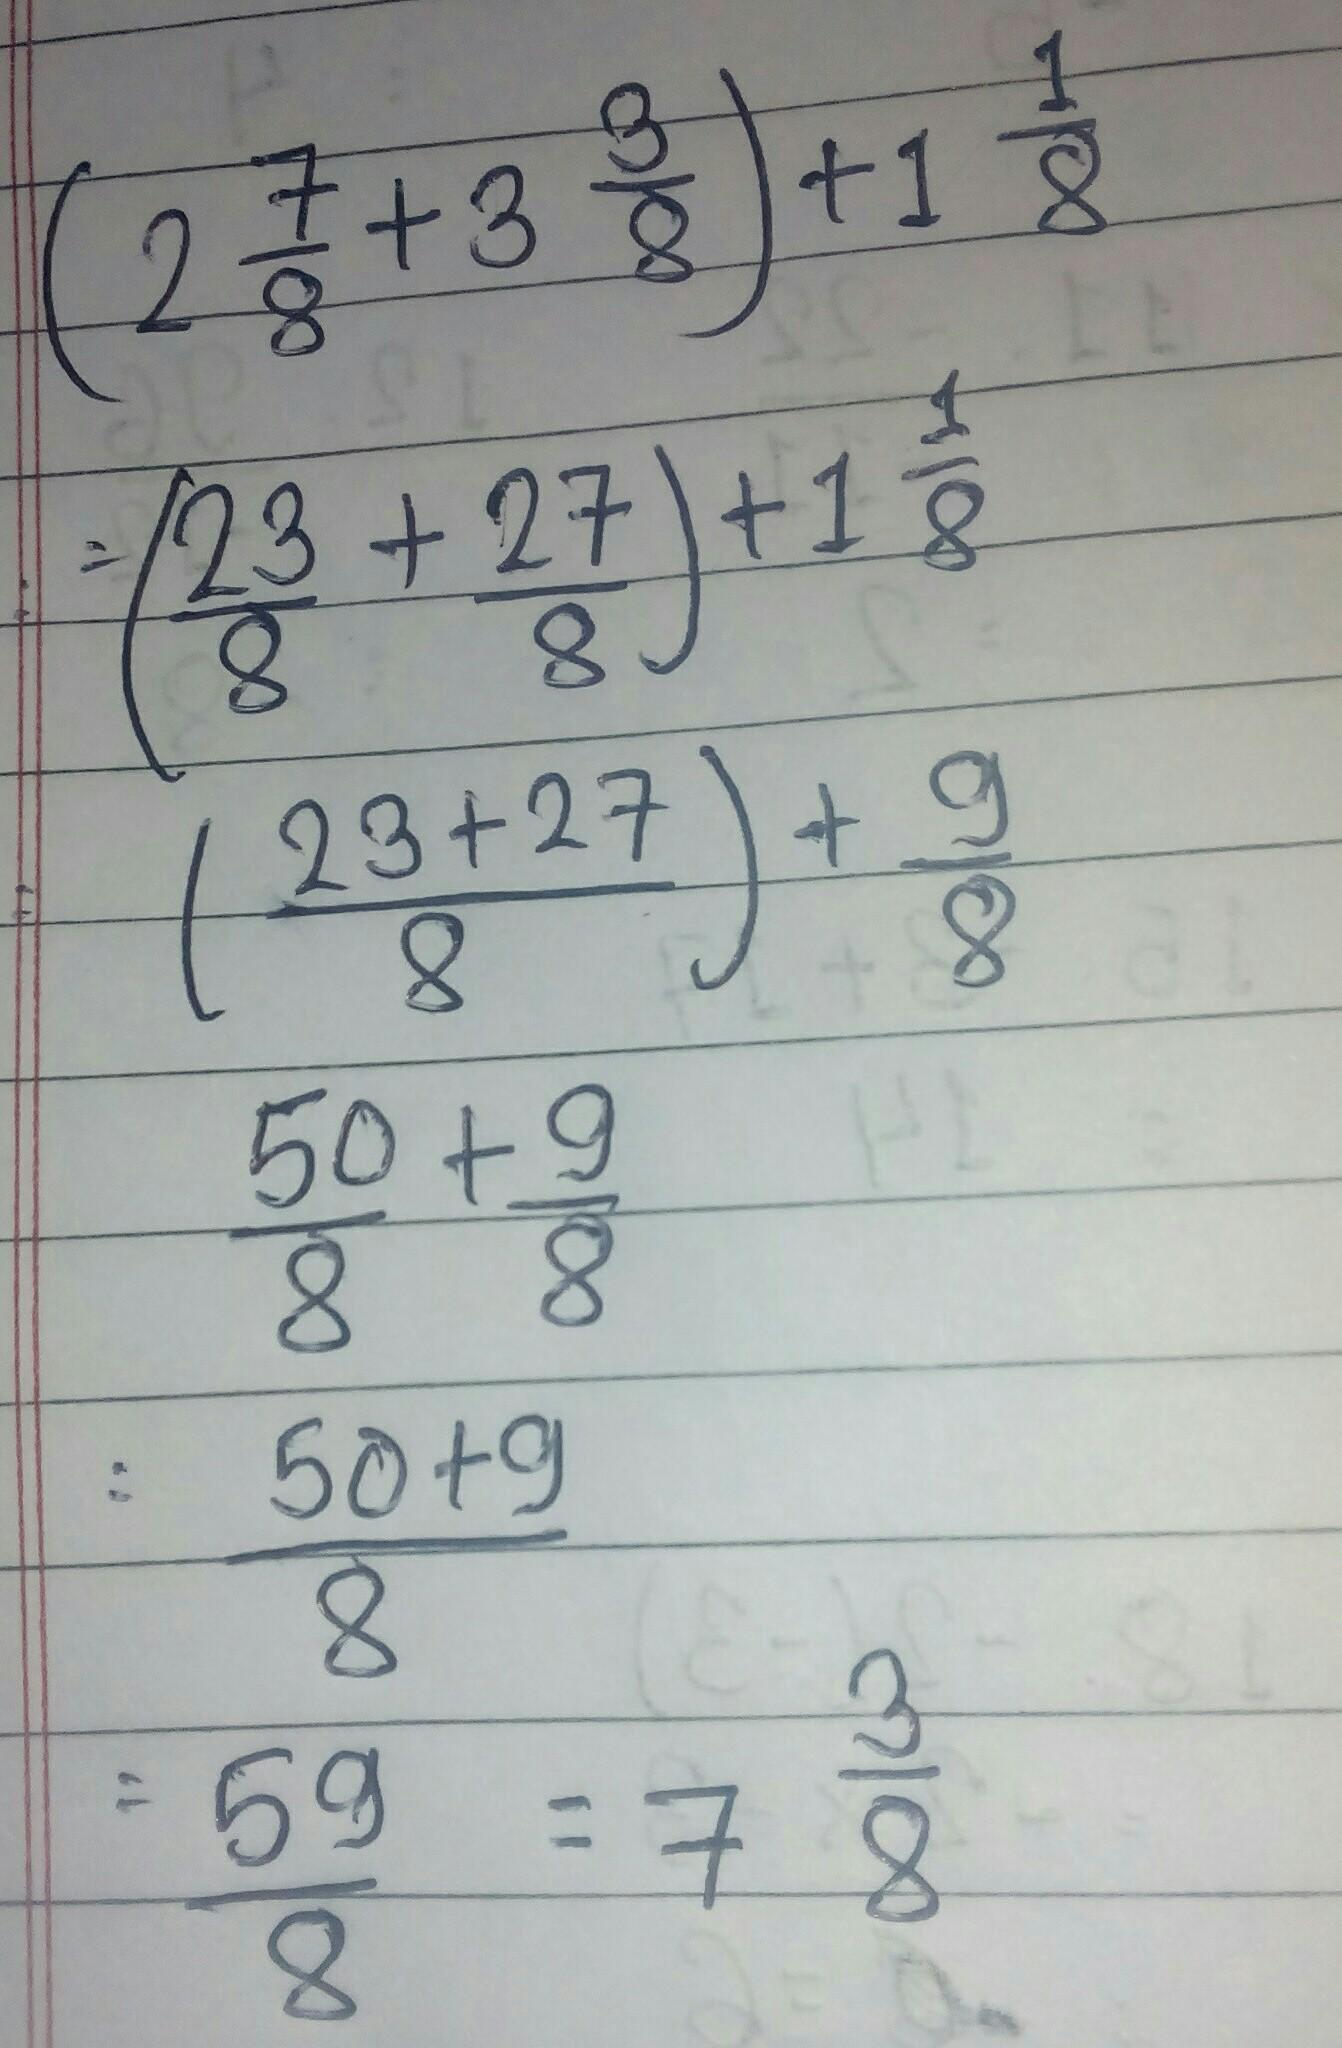 (2 7/8 + 3 3/8) + 1 1/8
= (23/8 + 27/8) + 1 1/8
= (23+27/8) + 9/8
50/8 + 9/8
= 50+9/8
= 59/8 = 7 3/8